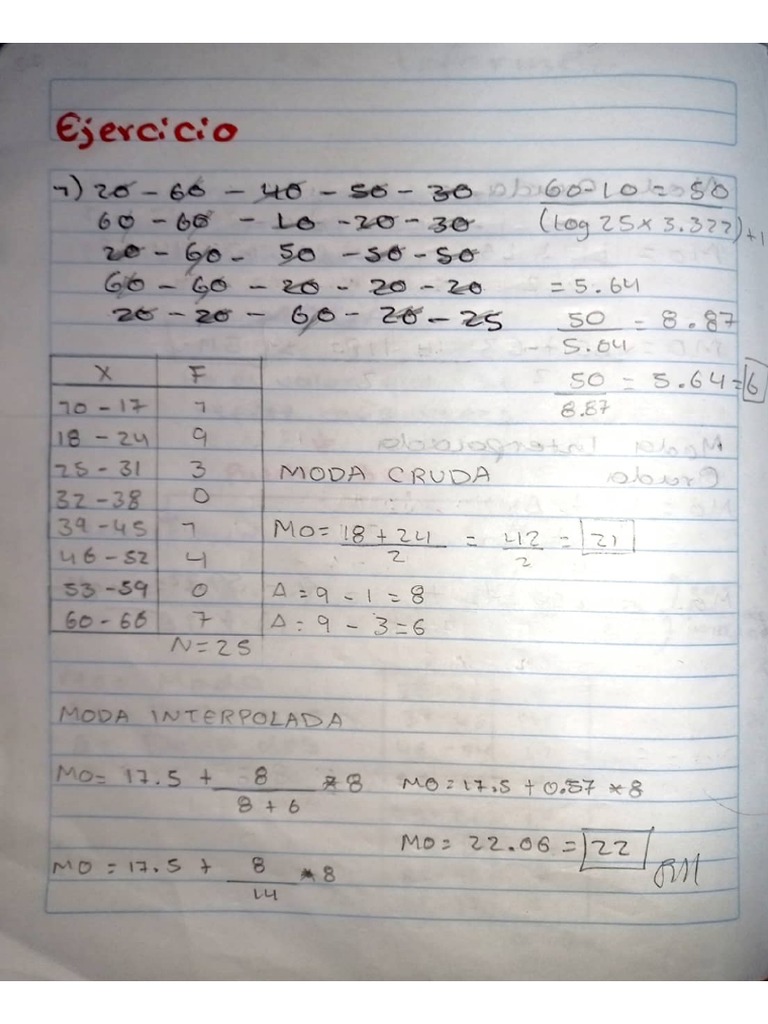 Ejercicio
1) 20 - 60 - 40 - 50 - 30
60 - 60 - 10 - 20 - 30
20 - 60 - 50 - 50 - 50
60 - 60 - 20 - 20 - 20
20 - 20 - 60 - 20 - 25
60-10 = 50
(log 25 x 3.322) +1
= 5.64
50 = 8.87
5.64
50 = 5.64 = 6
8.87
X F
10 - 17 1
18 - 24 9
25 - 31 3
32 - 38 0
39 - 45 1
46 - 52 4
53 - 59 0
60 - 66 7
N = 25
MODA CRUDA
MO = 18 + 24 = 42 = 21
2 2
Δ = 9 - 1 = 8
Δ = 9 - 3 = 6
MODA INTERPOLADA
MO = 17.5 + 8 * 8
8 + 6
MO = 17.5 + 8 * 8
14
MO = 17.5 + 0.57 * 8
MO = 22.06 = 22